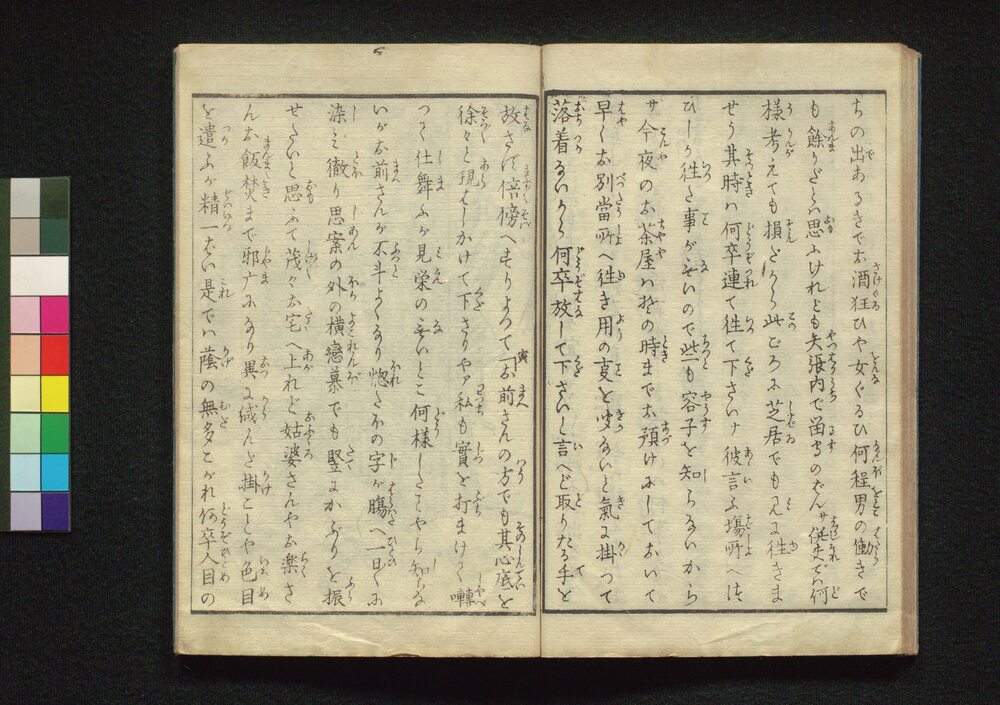 ちの出あるきで玄酒狂ひや女ぐるひ何程男の働きで
も餘りだとハ思ふけれども矢張内で留守のばんサ併夫でハ何
様考えても損だから此むろに芝居でも見に往きま
せう其時ハ何卒連て往て下さいナ彼言ふ場所へハ
ひしか往た事がないので些も容子を知らないから
サ今夜のお茶屋ハ其の時までお預けにしておいて
早くお別當所へ往き用の支を安ないと氣に掛つて
落着ないから何卒放して下さいと言へど取りたる手を
放さず倍傍へすりよつて寅「お前さんの方でも其心底を
徐々と現はしかけて下さりやア私も實を打まけて囀
つて仕舞ふが見栄のないとこ何様したことやら知らな
いがお前さんが不斗よくなり惚たホの字が膓へ一日くに
染ミ徹り思案の外の横戀慕でも竪にかぶりを振
せたいと思ふて茂々お宅へ上れど姑婆さんやお楽さ
んお飯焚まで邪广になり異に緘んと掛ことや色目
を遣ふが精一ぱい是でハ蔭の無多こがれ何卒人目の